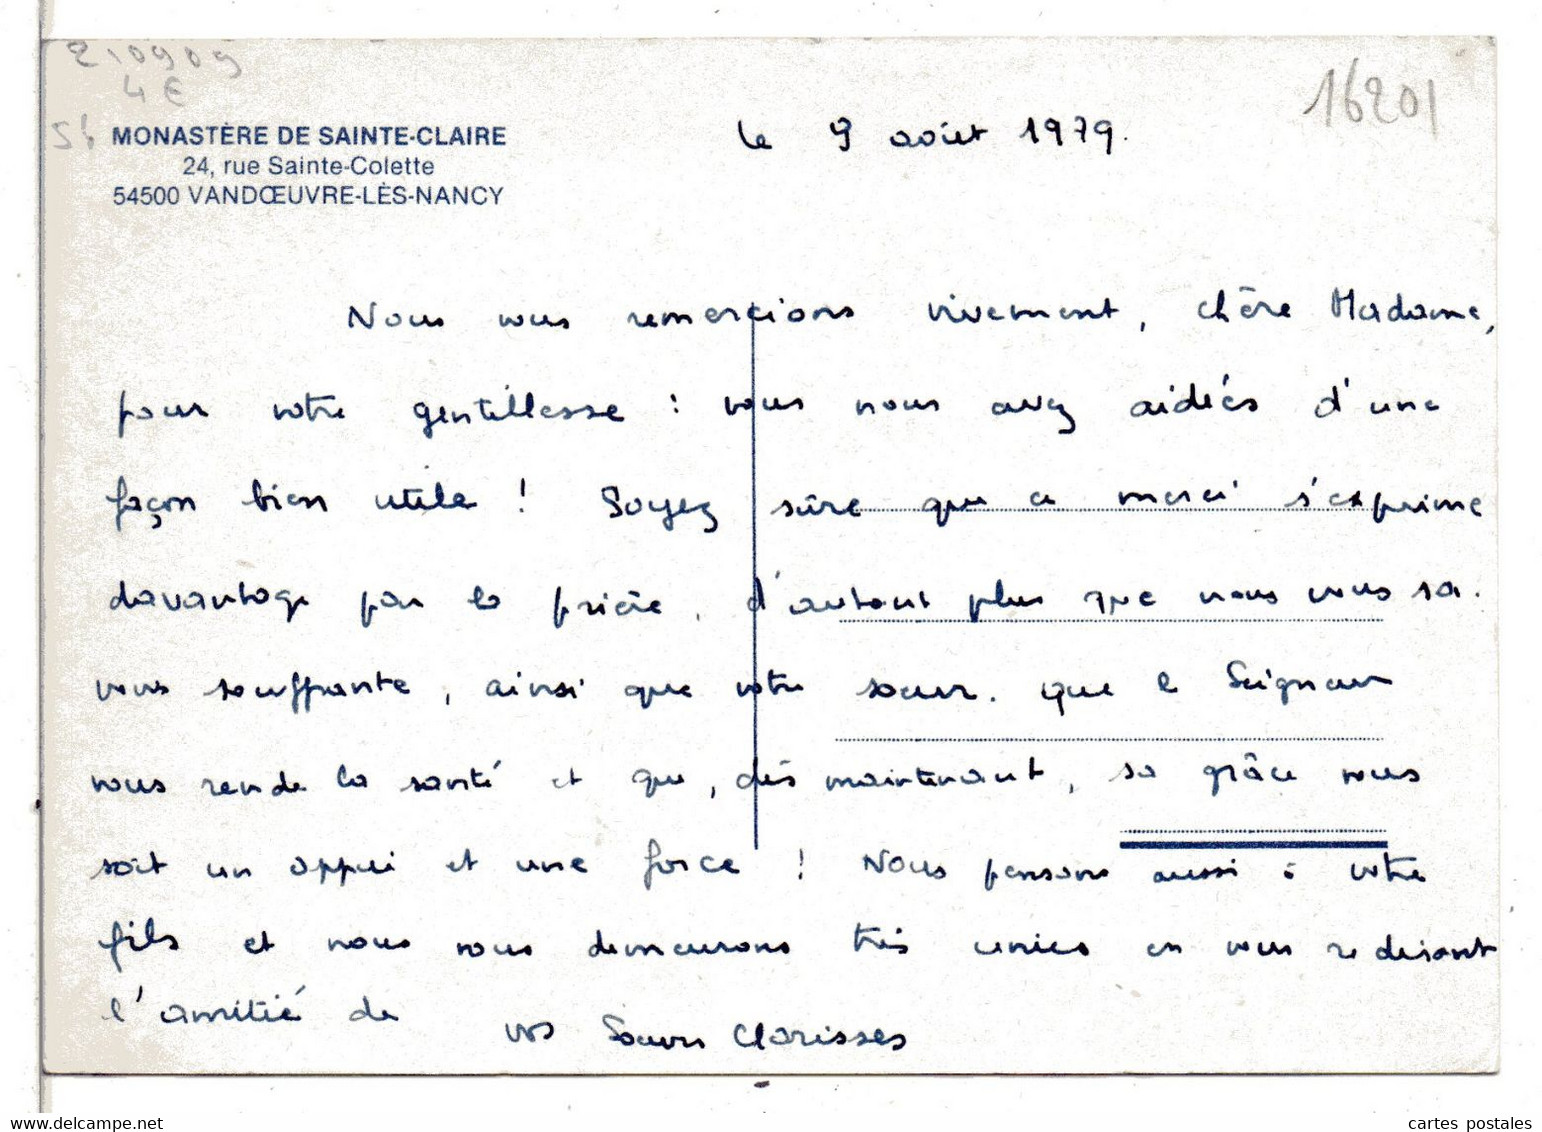 210909
4€
16201
MONASTÈRE DE SAINTE-CLAIRE
24, rue Sainte-Colette
54500 VANDŒUVRE-LÈS-NANCY
le 9 août 1979.
Nous vous remercions vivement, chère Madame,
pour votre gentillesse : vous nous avez aidées d'une
façon bien utile ! Soyez sûre que ce merci s'exprime
davantage par la prière, d'autant plus que nous vous sa.
vons souffrante, ainsi que votre sœur. que le Seigneur
vous rende la santé et que, dès maintenant, sa grâce vous
soit un appui et une force ! Nous pensons aussi à votre
fils et nous vous demeurons très unies en vous redisant
l'amitié de
vos Sœurs Clarisses
cartes postales
delcampe.net